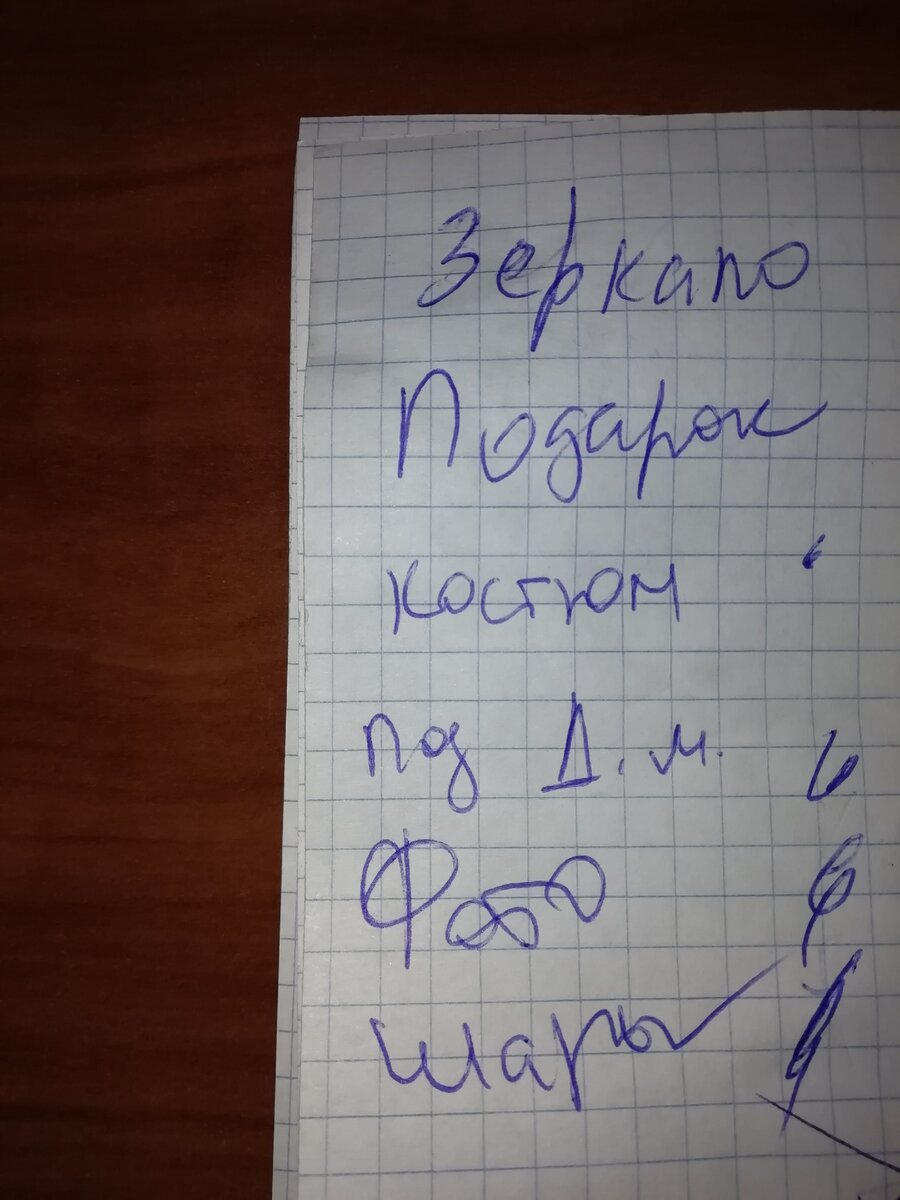 Зеркало
Подарок
костюм
под Д. м.
Фото
шары